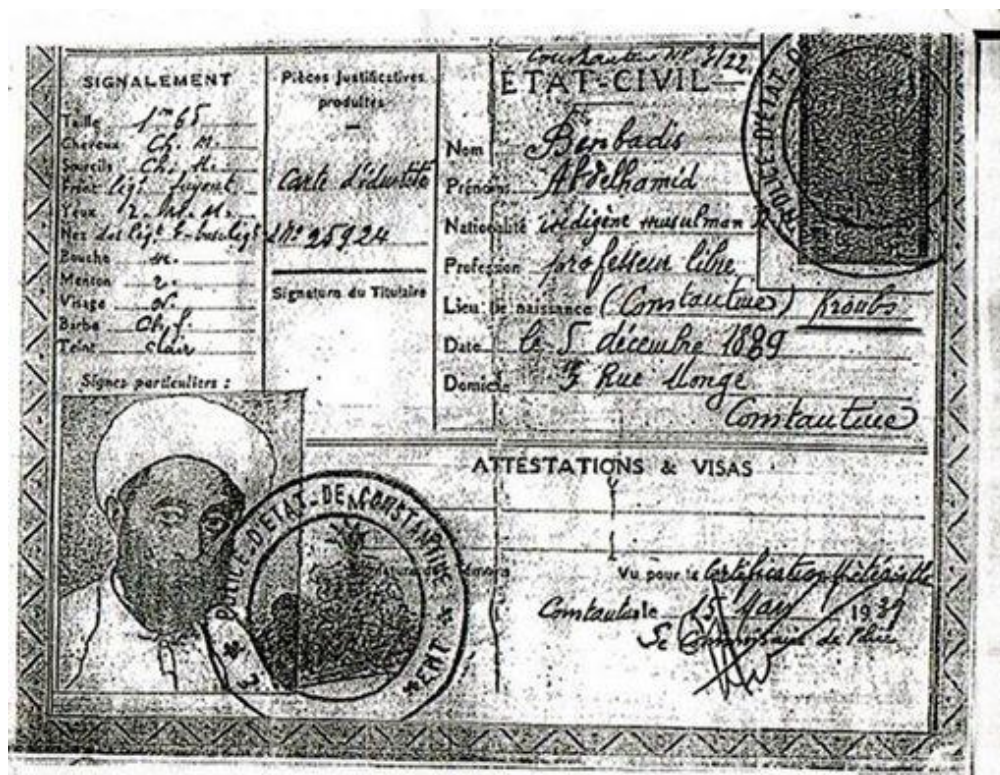 SIGNALEMENT
Taille 1m65
Cheveux Ch. M.
Sourcils Ch. M.
Front légt fuyant
Yeux
Nez dos légt
Bouche m.
Menton r.
Visage ov.
Barbe Ch. f.
Teint clair
Signes particuliers :
Pièces justificatives
produites
Carte d'identité
Nº 25924
Signature du Titulaire
Constantine Nº 3/22
ÉTAT-CIVIL
Nom Benbadis
Prénoms Abdelhamid
Nationalité indigène musulman
Profession professeur libre
Lieu de naissance (Constantine) Kroubs
Date le 5 décembre 1889
Domicile 3 Rue Monge
Constantine
POLICE D'ÉTAT
ATTESTATIONS & VISAS
Vu pour la Certification matérielle
Constantine le 15 May 1939
Le Commissaire de Police
POLICE-D'ÉTAT-DE-CONSTANTINE